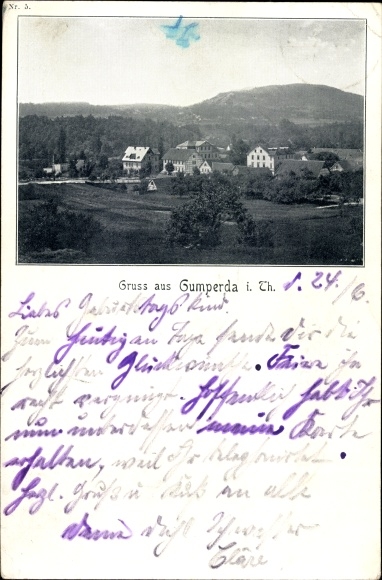 Nr. 5.
Gruss aus Gumperda i. Th. d. 24./6.
Liebes Geburtstagskind.
Zum heutigen Tage sende Dir die
herzlichsten Glückwünsche. Feiere ihn
recht vergnügt. Hoffentlich habt Ihr
nun unterdessen meine Karte
erhalten, weil Ihr telegraphiert.
Herzl. Gruß u. Kuß an alle
Deine Schwester
Cläre